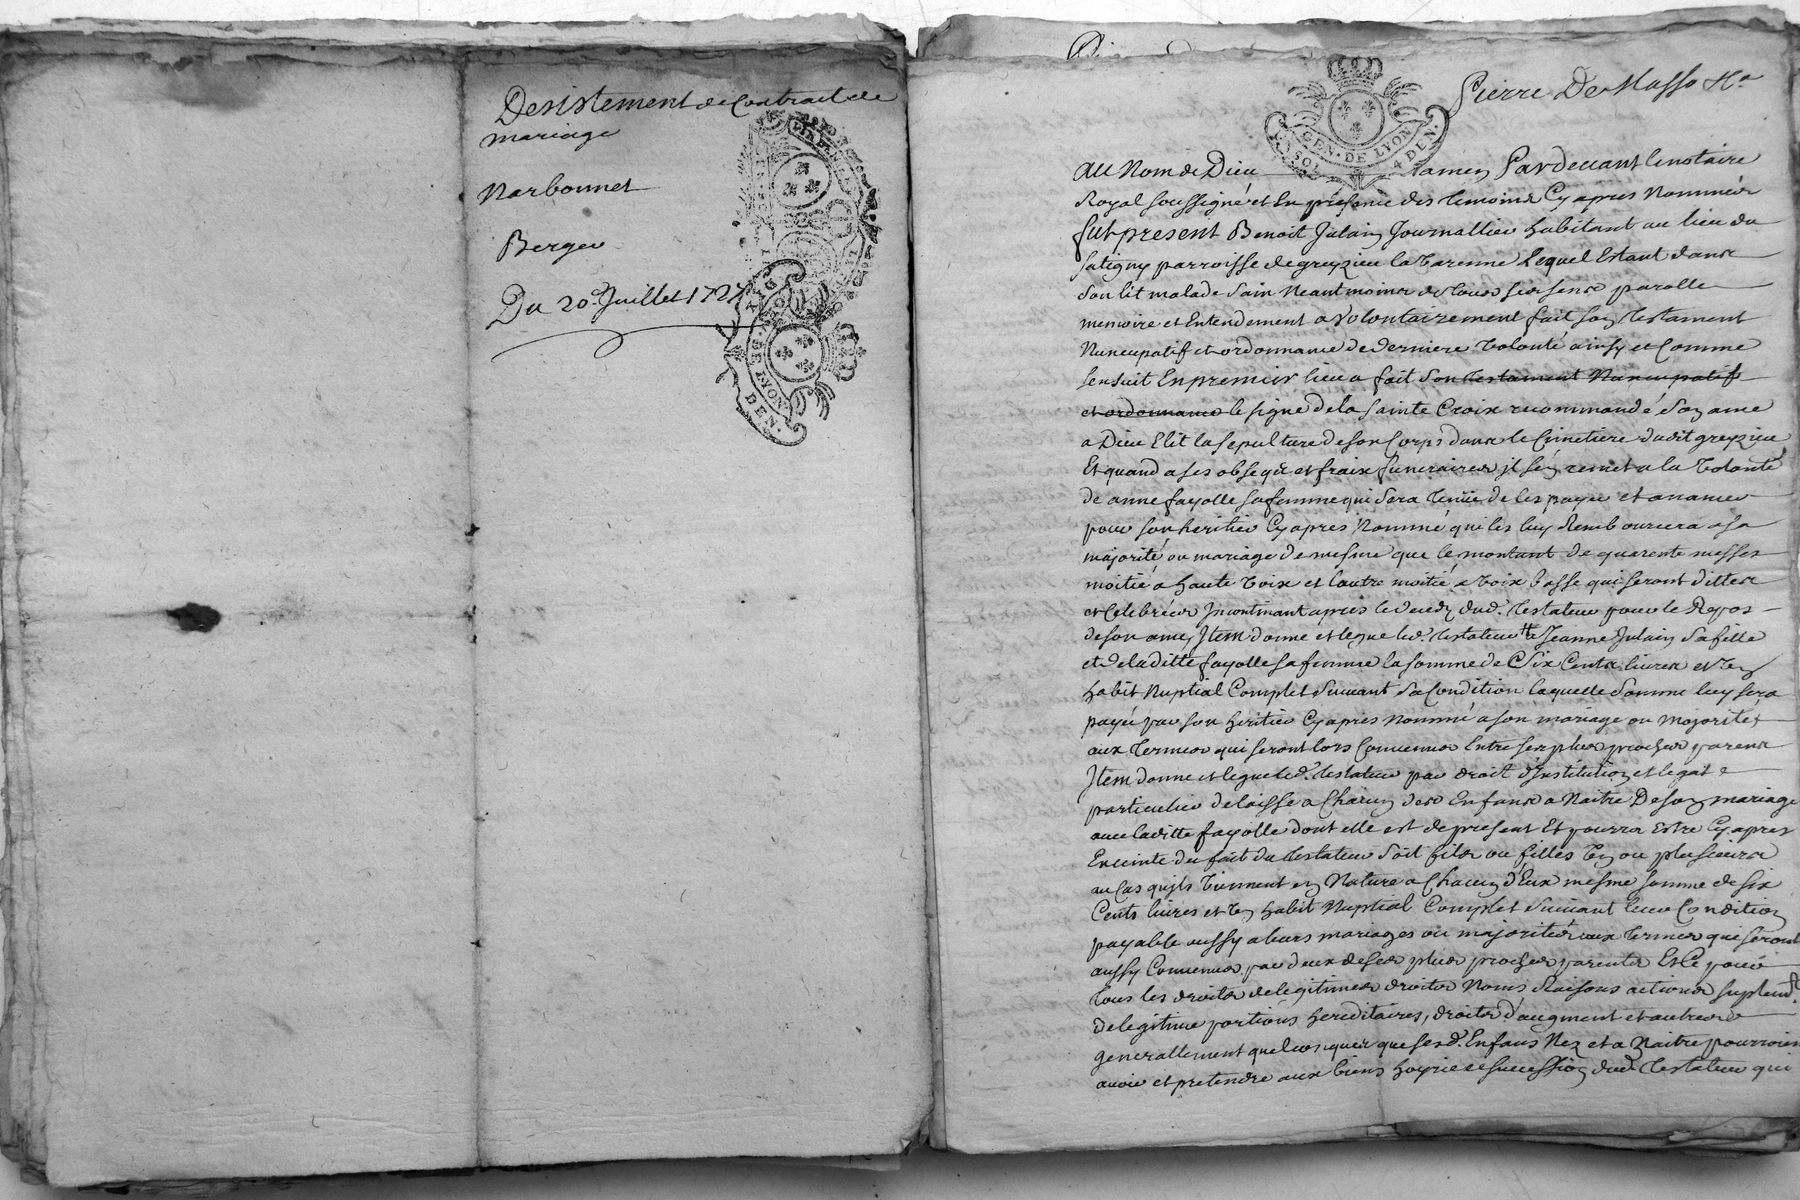 Desistement de Contract de
mariage
Narbonnet
Berger
Du 20e Juillet 1727
GEN. DE LYON
4 DEN.
LYON
DEN.
Pierre De Masso
au Nom de Dieu amen Pardevant le notaire
Royal soussigné et En présence des temoins Cy apres Nommés
fut present Benoit Julain Journallier habitant au lieu du
Satigny parroisse de greyzieu la Varenne Lequel Estant dans
son lit malade sain Neantmoins de tous ses sens parolle
memoire et Entendement a volontairement fait son testament
Nuncupatif et ordonnance de derniere volonté ainsy et Comme
sensuit En premier lieu a fait son testament Nuncupatif
et ordonnance le signe de la sainte Croix recommandé son ame
a Dieu Elit la sepulture de son Corps dans le Cimetiere dudit greyzieu
Et quand a ses obseques et fraix funeraires il s'en remet a la volonté
de anne fayolle sa femme qui sera tenüe de les payer et avancer
pour son heritier Cy apres Nommé qui les luy Rembourcera a sa
majorité ou mariage de mesme que le montant de quarente messes
moitié a haute voix et l'autre moitié a voix basse qui seront dittes
et Celebrées Incontinant apres le deceds dud. testateur pour le Repos
de son ame, Item donne et legue led. testateur a Jeanne Julain sa fille
et de laditte fayolle sa femme la somme de Six Cents livres et un
habit Nuptial Complet suivant sa Condition laquelle somme luy sera
payée par son heritier Cy apres Nommé a son mariage ou Majorité
aux termes qui seront lors Convenus Entre ses plus proches parens
Item donne et legue led. testateur par droit d'Institution et legat
particulier delaisse a Chacun des Enfans a Naitre De son mariage
avec laditte fayolle dont elle est de present Et pourra Estre Cy apres
Enceinte du fait du testateur soit fils ou filles un ou plusieurs
au Cas qu'ils viennent en Nature a Chacun d'Eux mesme somme de six
Cents livres et un habit Nuptial Complet suivant leur Condition
payable aussy a leurs mariages ou majorités aux termes qui seront
aussy Convenus par deux de ses plus proches parents Et Ce pour
tous les droits de legitimes droits Noms Raisons actions suplemt.
de legitime portions hereditaires, droits d'augment et autres
generallement quelconques que sesd. Enfans Nez et a Naitre pourroient
avoir et pretendre aux biens hoyrie et succession dud. testateur qui